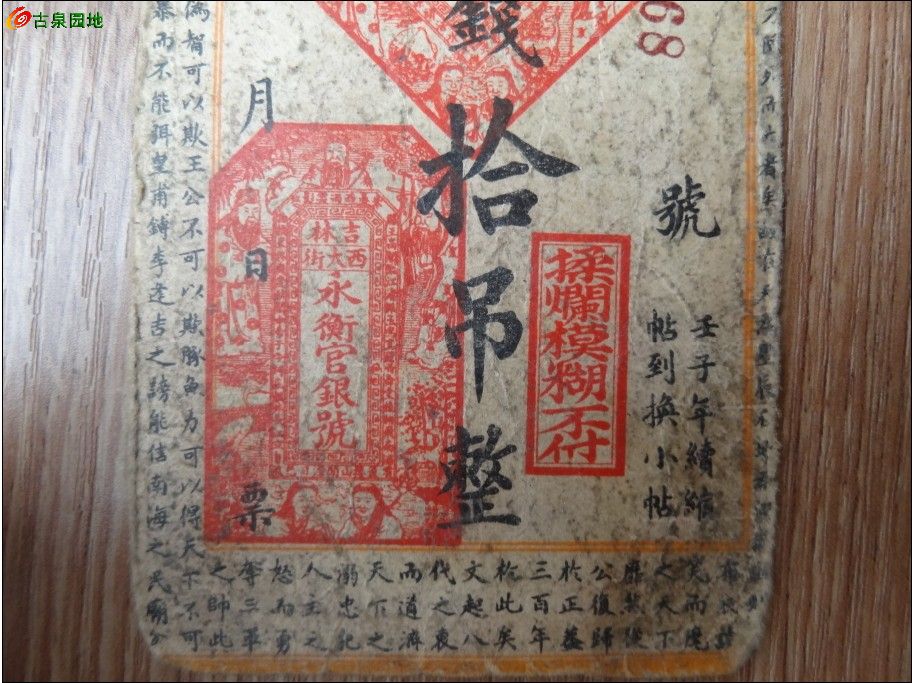 古泉园地
68
號
壬子年續縮
帖到換小帖
錢拾吊整
揉爛模糊不付
月日票
吉林
西大街
永衡官銀號
笑而麾
之天下
靡然從
公復歸
於正蓋
三百年
於此矣
文起八
代之衰
而道濟
天下之
溺忠犯
人主之
怒而勇
奪三軍
之帥此
偽智可以欺王公不可以欺豚魚力可以得天下不可
暴而不能弭皇甫鎛李逢吉之謗能信南海之民廟